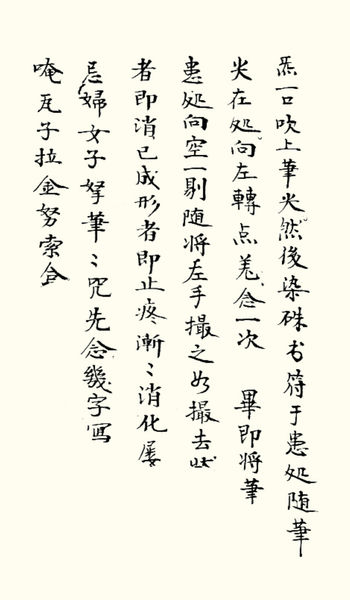 炁一口吹上筆尖然後染硃书符于患処随筆
尖在処向左轉点羌念一次 畢即将筆
患処向空一剔随将左手撮之如撮去状
者即消已成形者即止疼漸〻消化屡
忌婦女子孥筆〻咒先念幾字写
唵瓦子拉金努索合